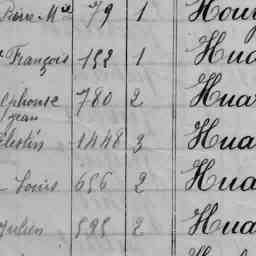 Pierre M 79 1 Hou
François 152 1 Hua
Alphonse 780 2 Hua
Jean
Célestin 1448 3 Hua
Louis 656 2 Hua
Julien 595 2 Hua